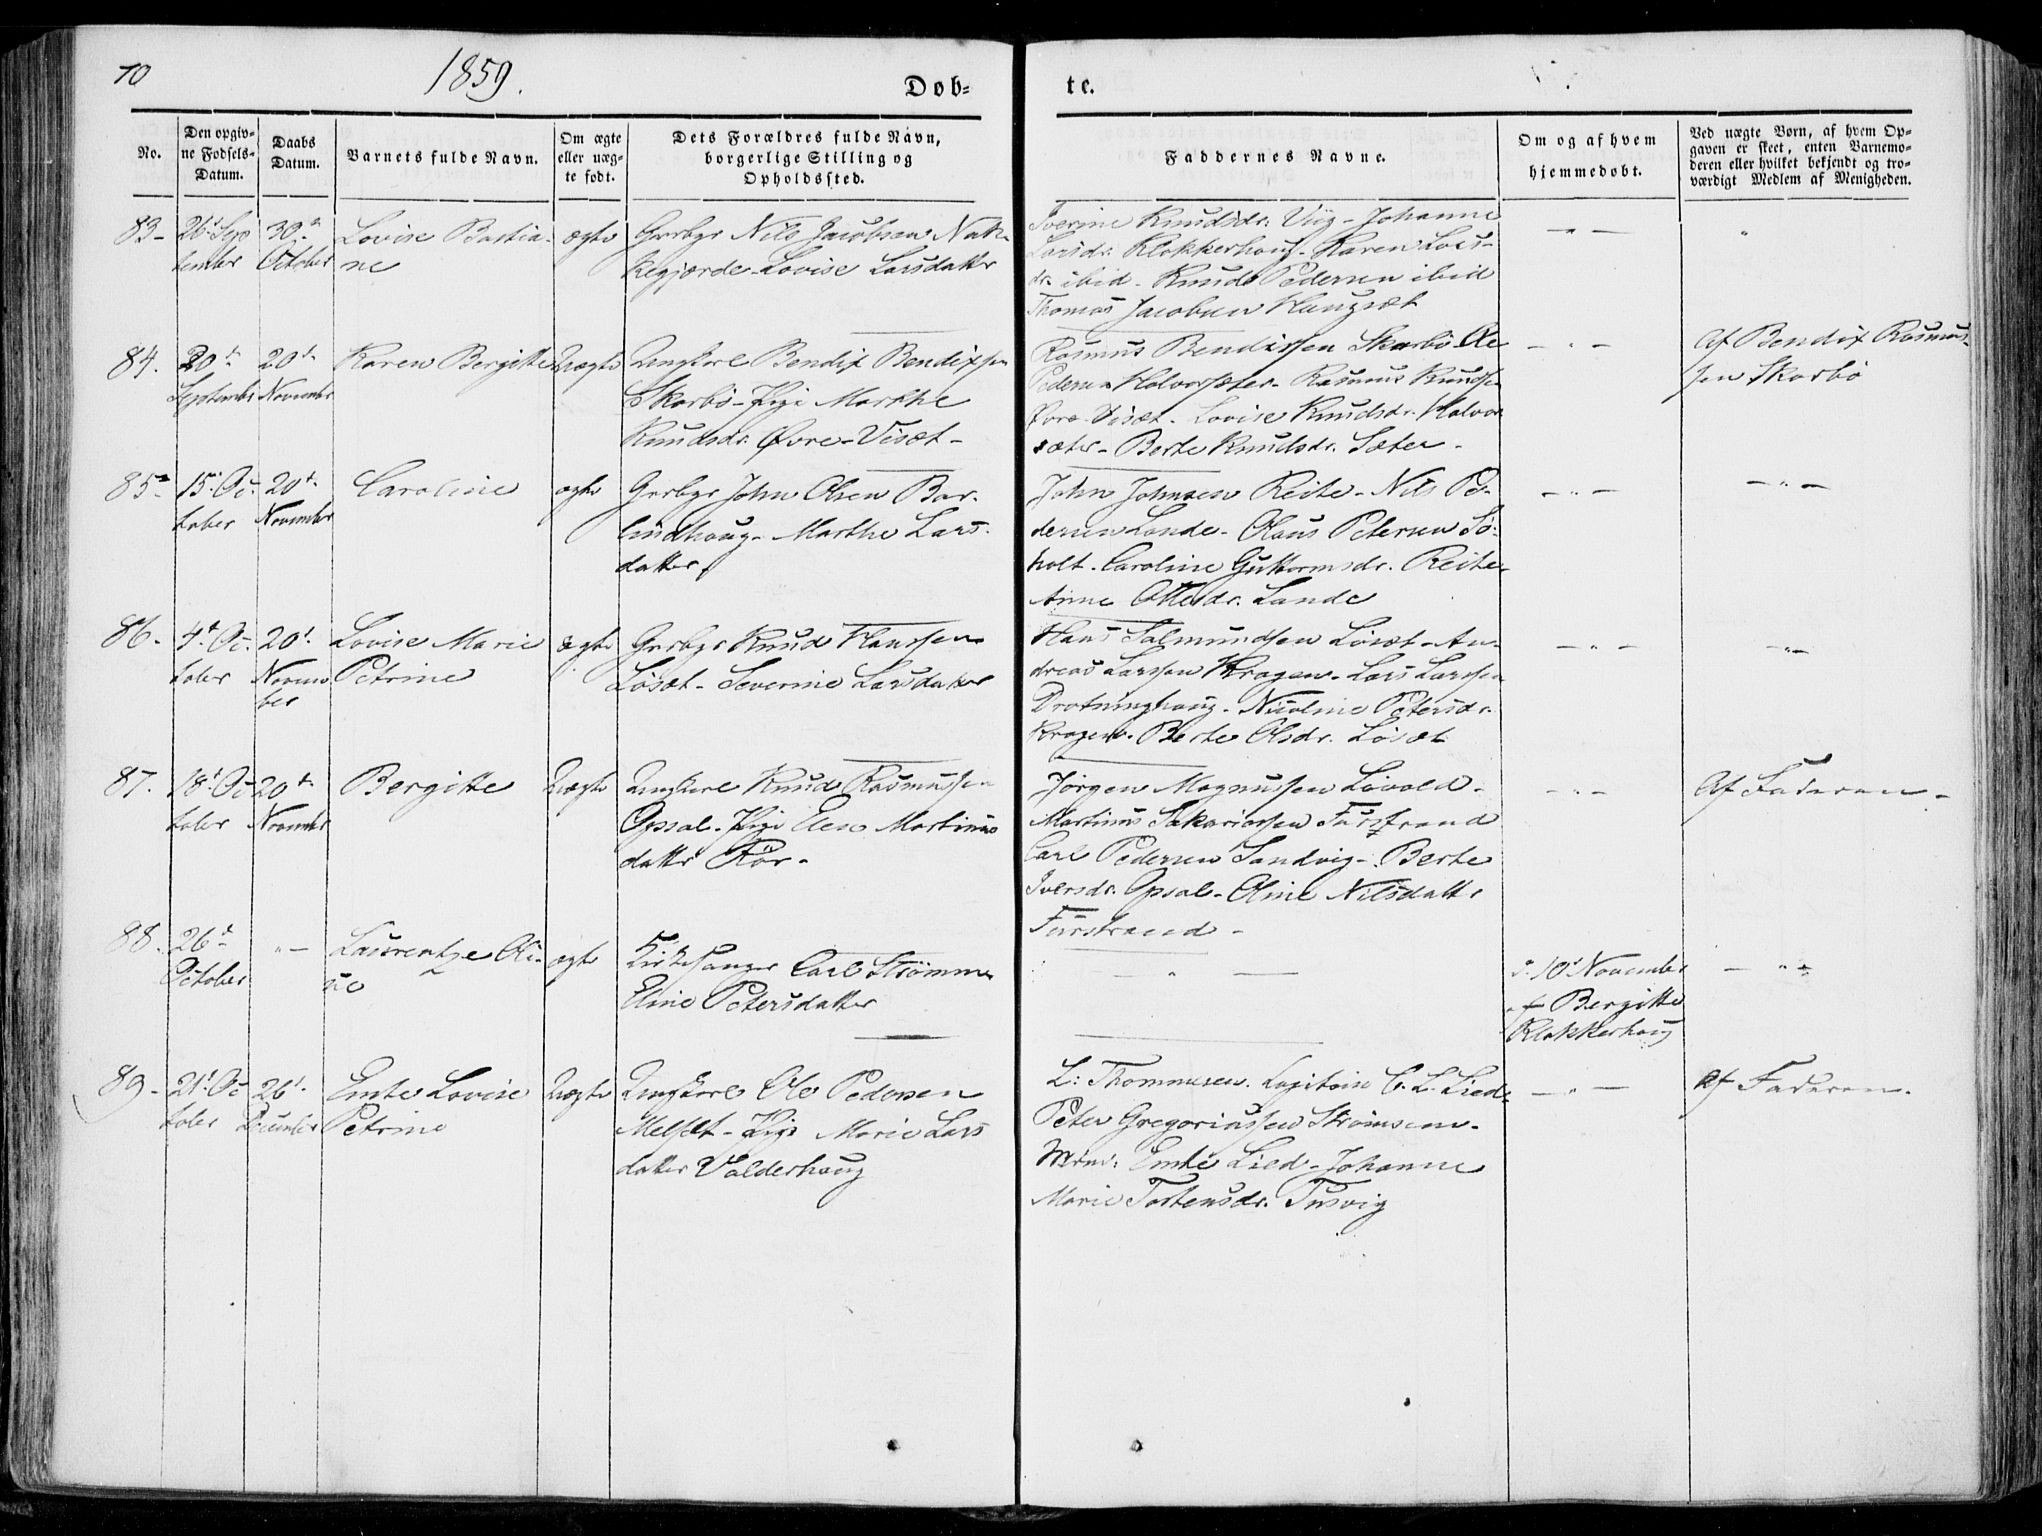 70
1859.
Døb-
te.
No.
Den opgiv-
ne Fødsels-
Datum.
Daabs
Datum.
Barnets fulde Navn.
Om ægte
eller uæg-
te født.
Dets Forældres fulde Navn,
borgerlige Stilling og
Opholdssted.
Faddernes Navne.
Om og af hvem
hjemmedøbt.
Ved uægte Børn, af hvem Op-
gaven er skeet, enten Barnemo-
deren eller hvilket bekjendt og tro-
værdigt Medlem af Menigheden.
83-
26t Sep
tember
30t
October
Lovise Bastia-
ne
ægte
Grbgr Nils Jacobsen Nak-
kegjærde - Lovise Larsdatter
Iverine Knudsdr. Viig - Johanne
Larsdr. Klokkerhoug - Karen Lars-
dr. ibid - Knud Pedersen ibid
Thomas Jacobsen Haugsæt
84.
20t
September
20t
November
Karen Bergitte
Uægte
Ungkarl Bendix Bendixsen
Skarbø - Pige Marthe
Knudsdr. Øvre-Visæt -
Rasmus Bendixsen Skarbø Ole
Pedersen Halvorsæter - Rasmus Knudsen
Øvre-Visæt - Lovise Knudsdr. Halvor
sæter - Berte Knudsdr. Sæter -
Af Bendix Rasmus-
sen Skarbø
85-
15. Oc-
tober
20t
November
Caroline
ægte
Grbgr John Olsen Bar-
lindhoug - Marthe Lars-
datter
John Johnsen Reite - Nils Pe-
dersen Lande - Olaus Petersen Sø-
holt - Caroline Guttormsdr. Reite
Anne Ottesdr. Lande
86-
4t Oc-
tober
20t
Novem
ber
Lovise Marie
Petrine
ægte
Grbgr Knud Hanssen
Løsæt - Severine Larsdatter
Hans Salmundsen Løsæt - An-
dreas Larssen Kragen - Lars Larssen
Drotninghaug - Nicoline Petersdr.
Kragen - Berte Olsdr. Løsæt
87.
18t Oc
tober
20t
November
Bergitte
Uægte
Ungkarl Knud Rasmussen
Opsal - Pige Elen Martinus
datter Rør -
Jørgen Magnussen Løvold -
Martinus Sakariassen Furstrand
Carl Pedersen Sandvig - Berte
Iversdr. Opsal - Oline Nilsdatter
Furstrand -
Af Faderen -
88.
26t
October
Laurentze Oli-
ne
ægte
Kirkesanger Carl Strømme
Eline Petersdatter
d. 10t November
af Bergitte
Klokkerhoug
89-
21t Oc
tober
26t
December
Emte Lovise
Petrine
Uægte
Ungkarl Ole Pedersen
Melsæt - Pige Marie Lars
datter Valderhaug
L: Thommesen. C. L. Lied
Peter Gregoriussen Strømsem -
Emte Lied - Johanne
Marie Tostensdr. Tusvig
Af Faderen.